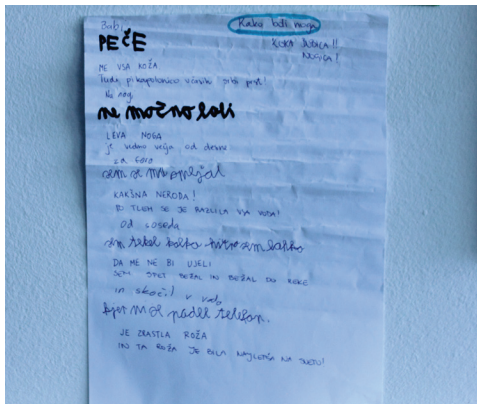 Boli
Kako boli noga
PEČE
KUKA JUHICA!!
NOGICA!
ME VSA KOŽA
Tudi pikapolonico včasih
Na nogi
ne močno boli
LEVA NOGA
je vedno večja od desne
za goro
sem se mu smejal
KAKŠNA NERODA!
PO TLEH SE JE RAZLILA VSA VODA!
od soseda
sem tekel kolikor hitro sem lahko
DA ME NE BI UJELI
SEM SPET BEŽAL IN BEŽAL DO REKE
in skočil v vodo
kjer mi je padel telefon.
JE ZRASTLA ROŽA
IN TA ROŽA JE BILA NAJLEPŠA NA SVETU!